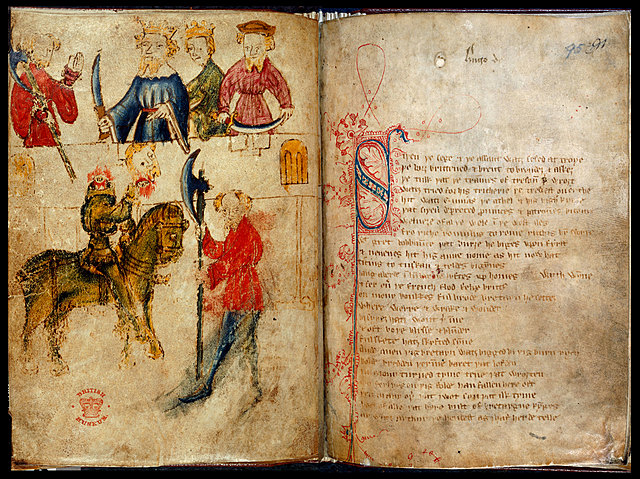 Hugo de
95 91
SIÞEN þe sege & þe assaut watz sesed at troye
þe borȝ brittened & brent to brondeȝ & askez
þe tulk þat þe trammes of tresoun þer wroȝt
watz tried for his tricherie þe trewest on erthe
hit watz ennias þe athel & his highe kynde
þat siþen depreced prouinces & patrounes bicome
welneȝe of al þe wele in þe west iles
fro riche romulus to rome ricchis hym swyþe
gret bobbaunce þat burȝe he biges vpon fyrst
& neuenes hit his aune nome as hit now hat
ticius to tuskan & teldes bigynnes
langaberde in lumbardie lyftes vp homes wyth wynne
& fer ouer þe french flod felix brutus
on mony bonkkes ful brode bretayn he settez
where werre & wrake & wonder
bi syþez hatz wont þer inne
& oft boþe blysse & blunder
ful skete hatz skyfted synne
ande quen þis bretayn watz bigged bi þis burn rych
bolde bredden þer inne baret þat lofden
in mony turned tyme tene þat wroȝten
mo ferlyes on þis folde han fallen here oft
þen in any oþer þat I wot syn þat ilk tyme
bot of alle þat here bult of bretaygne kynges
ay watz arthur þe hendest as I haf herde telle
BRITISH MUSEUM